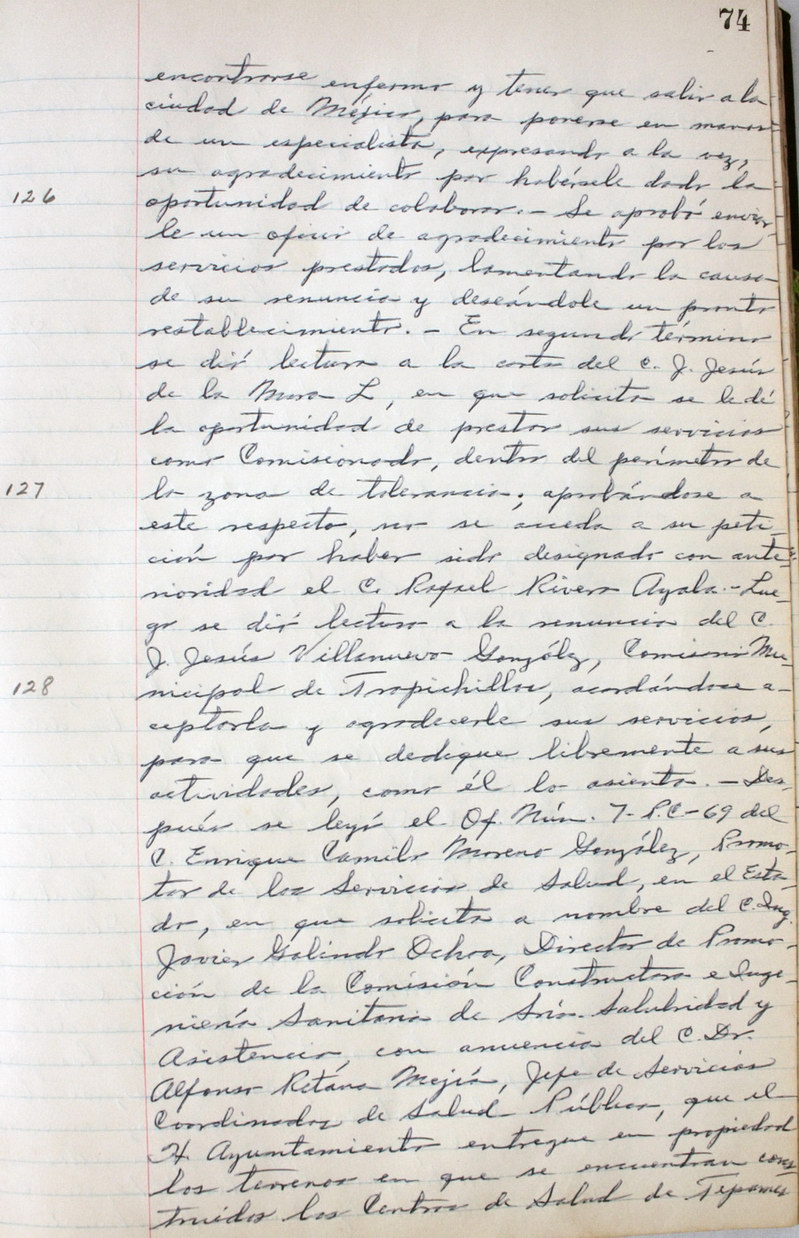 74
encontrarse enfermo y tener que salir a la
ciudad de Méjico, para ponerse en manos
de un especialista, expresando a la vez,
su agradecimiento por habérsele dado la
126
oportunidad de colaborar.- Se aprobó enviar-
le un oficio de agradecimiento por los
servicios prestados, lamentando la causa
de su renuncia y deseándole un pronto
restablecimiento. - En segundo término
se dió lectura a la carta del C. J. Jesús
de la Mora L, en que solicita se le dé
la oportunidad de prestar sus servicios
como Comisionado, dentro del perímetro de
127
la zona de tolerancia; aprobándose a
este respecto, no se acceda a su peti-
ción por haber sido designado con ante-
rioridad el C. Rafael Rivera Ayala.- Lue-
go se dió lectura a la renuncia del C.
J. Jesús Villanueva González, Comisario Mu-
128
nicipal de Trapichillos, acordándose a-
ceptarla y agradecerle sus servicios,
para que se dedique libremente a sus
actividades, como él lo asienta. - Des-
pués se leyó el Of. Núm. 7-P.C-69 del
C. Enrique Camilo Moreno González, Promo-
tor de los Servicios de Salud, en el Esta-
do, en que solicita a nombre del C. Ing.
Javier Galindo Ochoa, Director de Promo-
ción de la Comisión Constructora e Inge-
niería Sanitaria de Sría. Salubridad y
Asistencia, con anuencia del C. Dr.
Alfonso Retana Mejía, Jefe de Servicios
Coordinados de Salud Pública, que el
H. Ayuntamiento entregue en propiedad
los terrenos en que se encuentran cons-
truidos los Centros de Salud de Tepames